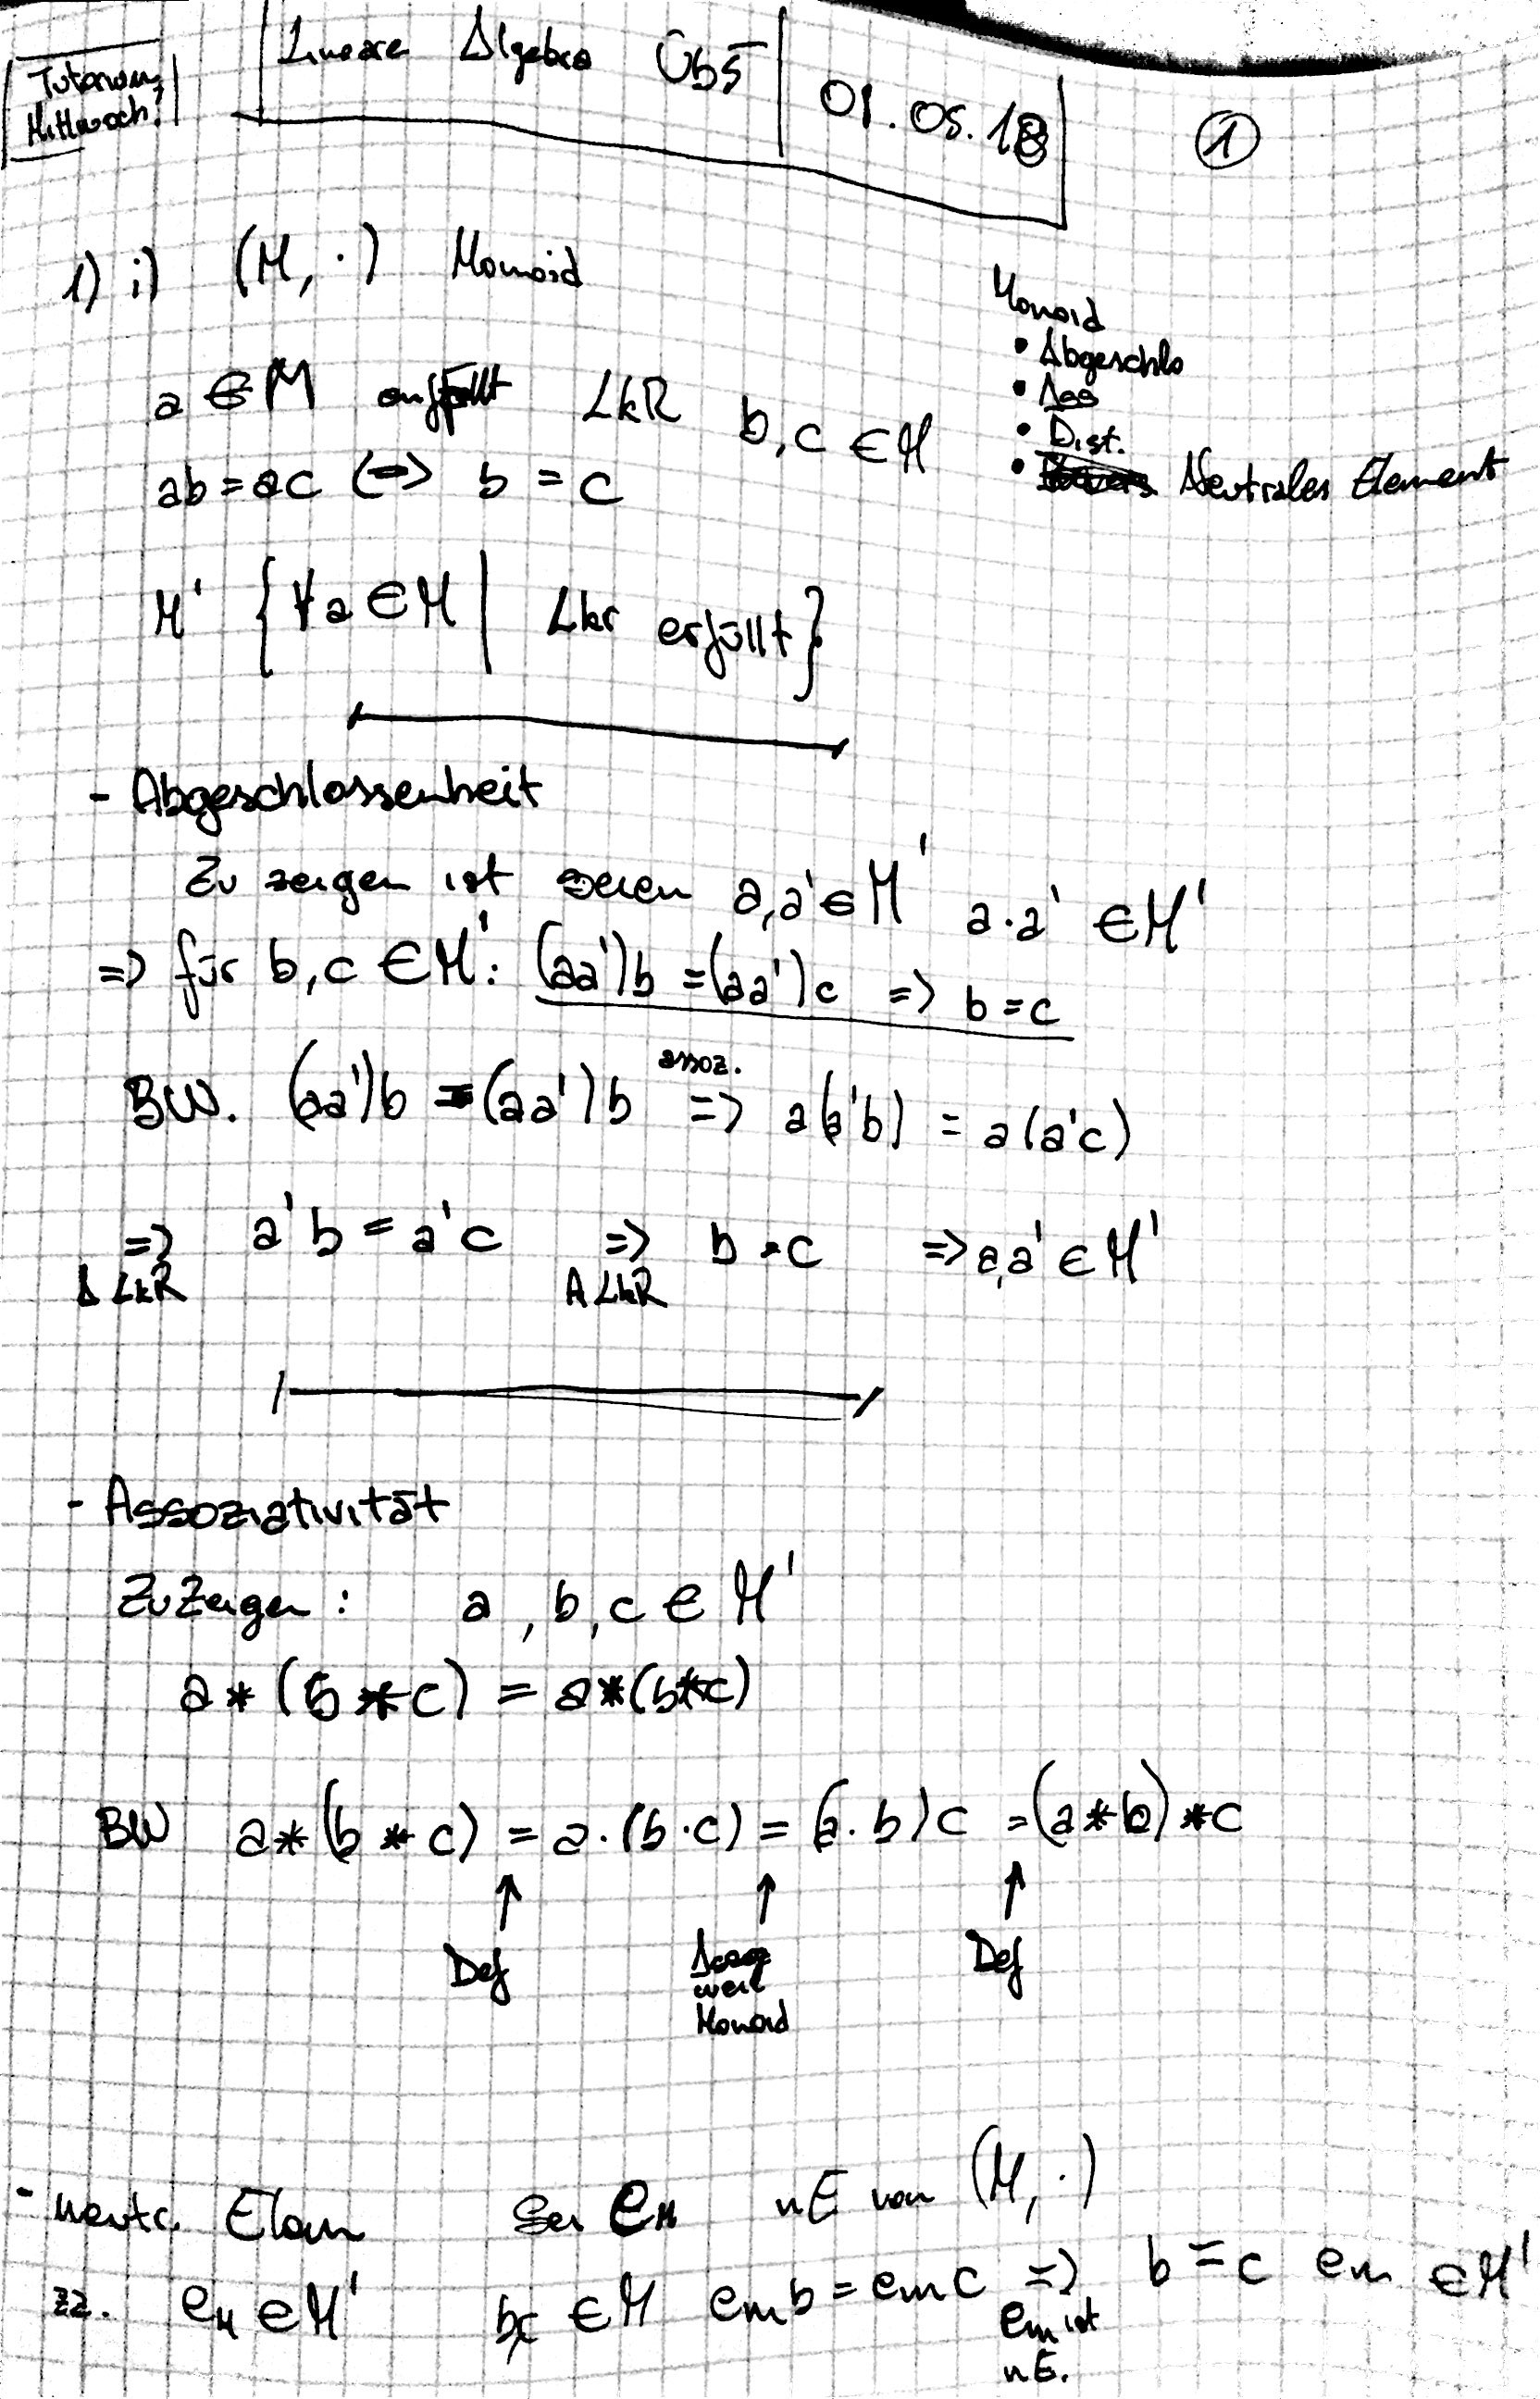 Tutorium,
Mittwoch!
Lineare Algebra Üb5
01.05.18
1
1) i) (M, ·) Monoid
Monoid
• Abgeschlo
• Ass
• Dist.
• Neutrales Element
a ∈ M LkR b, c ∈ M
ab = ac <=> b = c
M' {∀a ∈ M | Lkr erfüllt}
- Abgeschlossenheit
Zu zeigen ist seien a,a' ∈ M' a·a' ∈ M'
=> für b, c ∈ M': (aa')b = (aa')c => b = c
BW. (aa')b = (aa')b assoz. => a(a'b) = a(a'c)
=> a'b = a'c => b = c => a,a' ∈ M'
A LkR A LkR
- Assoziativität
Zu Zeigen : a , b, c ∈ M'
a * (b * c) = a*(b*c)
BW a * (b * c) = a·(b·c) = (a·b)c = (a*b)*c
↑ ↑ ↑
Def Assoz Def
weil
Monoid
- neutr. Elem Sei eM nE von (M, ·)
zz. eM ∈ M' b,c ∈ M emb = emc => b = c em ∈ M'
em ist
nE.